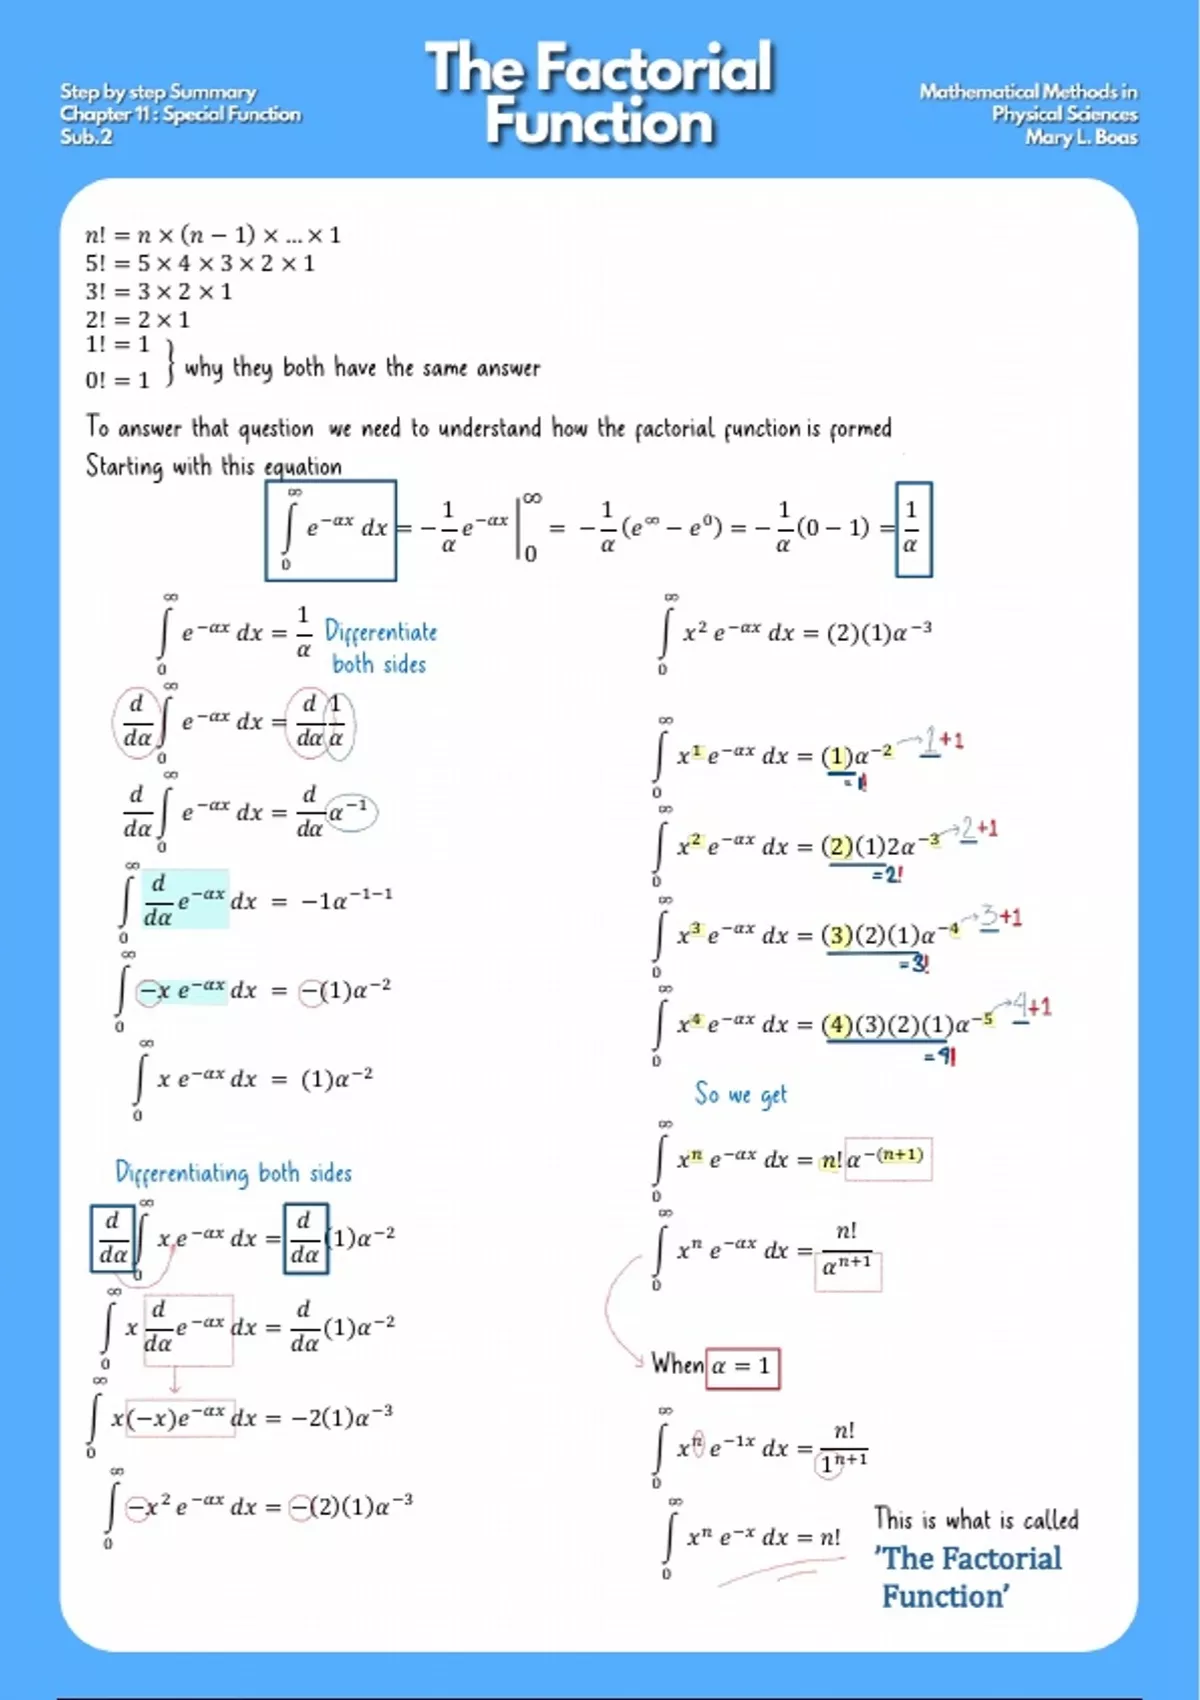 Step by step Summary
Chapter 11 : Special Function
Sub.2
The Factorial
Function
Mathematical Methods in
Physical Sciences
Mary L. Boas
n! = n × (n − 1) × … × 1
5! = 5 × 4 × 3 × 2 × 1
3! = 3 × 2 × 1
2! = 2 × 1
1! = 1
0! = 1
} why they both have the same answer
To answer that question we need to understand how the factorial function is formed
Starting with this equation
∫₀^∞ e^{−αx} dx = −1/α e^{−αx} |₀^∞ = −1/α (e^∞ − e^0) = −1/α (0 − 1) = 1/α
∫₀^∞ e^{−αx} dx = 1/α Differentiate
both sides
d/dα ∫₀^∞ e^{−αx} dx = d/dα 1/α
d/dα ∫₀^∞ e^{−αx} dx = d/dα α^{−1}
∫₀^∞ d/dα e^{−αx} dx = −1α^{−1−1}
∫₀^∞ −x e^{−αx} dx = −(1)α^{−2}
∫₀^∞ x e^{−αx} dx = (1)α^{−2}
Differentiating both sides
d/dα ∫₀^∞ x e^{−αx} dx = d/dα (1)α^{−2}
∫₀^∞ x d/dα e^{−αx} dx = d/dα (1)α^{−2}
∫₀^∞ x(−x)e^{−αx} dx = −2(1)α^{−3}
∫₀^∞ −x² e^{−αx} dx = −(2)(1)α^{−3}
∫₀^∞ x² e^{−αx} dx = (2)(1)α^{−3}
∫₀^∞ x¹ e^{−αx} dx = (1)α^{−2} 1+1
= 1!
∫₀^∞ x² e^{−αx} dx = (2)(1)2α^{−3} 2+1
= 2!
∫₀^∞ x³ e^{−αx} dx = (3)(2)(1)α^{−4} 3+1
= 3!
∫₀^∞ x⁴ e^{−αx} dx = (4)(3)(2)(1)α^{−5} 4+1
= 4!
So we get
∫₀^∞ xⁿ e^{−αx} dx = n! α^{−(n+1)}
∫₀^∞ xⁿ e^{−αx} dx = n!/α^{n+1}
When α = 1
∫₀^∞ xⁿ e^{−1x} dx = n!/1^{n+1}
∫₀^∞ xⁿ e^{−x} dx = n!
This is what is called
'The Factorial
Function'